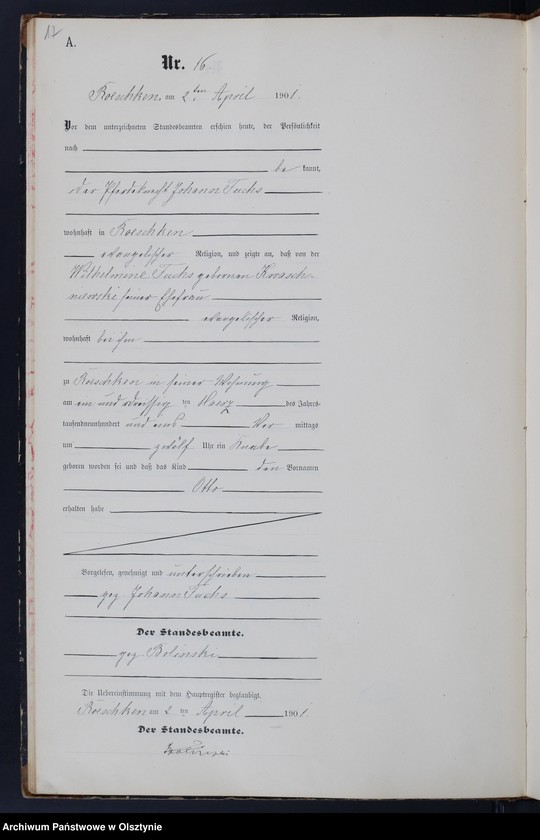 12
A.
Nr. 16
Roeschken, am 2ten April 1901.
Vor dem unterzeichneten Standesbeamten erschien heute, der Persönlichkeit
nach
be kannt,
der Pferdeknecht Johann Fuchs
wohnhaft in Roeschken
evangelischer Religion, und zeigte an, daß von der
Wilhelmine Fuchs geborenen
seiner Ehefrau
evangelischer Religion,
wohnhaft bei ihm
zu Roeschken in seiner Wohnung
am ein und dreissig ten Maerz des Jahres
tausendneunhundert und eins Vor mittags
um zwölf Uhr ein Knabe
geboren worden sei und daß das Kind den Vornamen
Otto
erhalten habe
Vorgelesen, genehmigt und unterschrieben
gez Johann Fuchs
Der Standesbeamte.
gez. Bolinski
Die Uebereinstimmung mit dem Hauptregister beglaubigt.
Roeschken am 2 ten April 1901.
Der Standesbeamte.
Archiwum Państwowe w Olsztynie